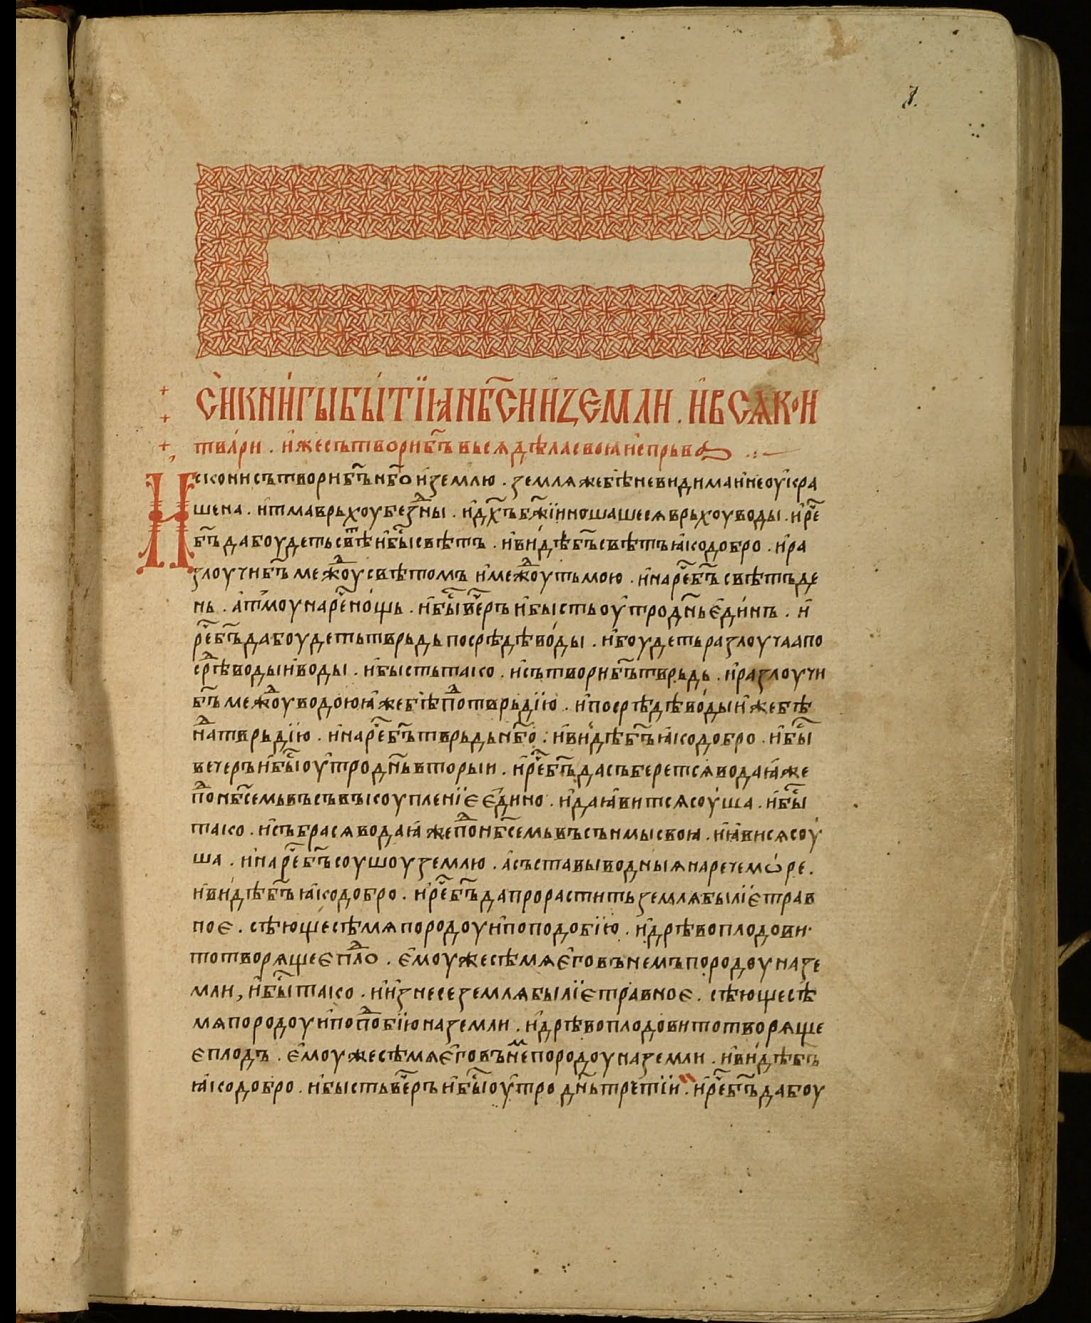 СИ КНИГЫ БЫТІꙖ Н҃БСИ И ЗЕМЛИ . И ВСꙖКОИ
твари . иже сътвори б҃ъ вьсѧ дѣла своꙗ испрьва
Искони сътвори б҃ъ н҃бо и землю . землѧ же бѣ невидима и неоукра
шена . и тма врьхоу безⷣны . и д҃хъ б҃жїи ношашесѧ врьхоу воды . и реⷱ҇
б҃ъ да боудеть свѣⷮ и быⷭ҇ свѣтъ . и видѣ б҃ъ свѣтъ ꙗко добро . и ра
злоучи б҃ъ межоⷣу свѣтомъ и межоⷣу тьмою . и нареⷱ҇ б҃ъ свѣтъ де
нь . а тмоу нареⷱ҇ нощь . и быⷭ҇ веⷱ҇ръ и бысть оутро д҃нь єдинъ . и
реⷱ҇ б҃ъ да боудеть тврьдь посрѣдѣ воды . и боудеть разлоучаа по
срѣⷣ воды и воды . и бысть тако . и сътвори б҃ъ тврьдь . и разлоучи
б҃ъ межоⷣу водою ꙗже бѣ поⷣ тврьдїю . и посрѣдѣ воды иже бѣ
наⷣ тврьдїю . и нареⷱ҇ б҃ъ тврьдь н҃бо . и видѣ б҃ъ ꙗко добро . и быⷭ҇
вечеръ и быⷭ҇ оутро д҃нь вторыи . и реⷱ҇ б҃ъ да съберетсѧ вода ꙗже
поⷣ н҃бсемь въ съвъкоупленїє єдино . и да ꙗвитсѧ соуша . и быⷭ҇
тако . и събрасѧ вода ꙗже поⷣ н҃бсемь въ сънмы своꙗ . и ꙗвисѧ соу
ша . и нареⷱ҇ б҃ъ соушоу землю . а съставы водныѧ нарече мѡре .
и видѣ б҃ъ ꙗко добро . и реⷱ҇ б҃ъ да прорастить землѧ былїє трав
ноє . сѣющє сѣмѧ по родоу и по подобїю . и дрѣво плодови
то творѧщеє плоⷣ . ємоуже сѣмѧ єго въ немъ по родоу на зе
мли , и быⷭ҇ тако . и изнесе землѧ былїє травноє . сѣющє сѣ
мѧ по родоу и по поⷣбїю на земли . и дрѣво плодовито творѧще
є плодъ . ємоуже сѣмѧ єго въ неⷨ по родоу на земли . и видѣ б҃ъ
ꙗко добро . и бысть веⷱ҇ръ и быⷭ҇ оутро д҃нь третїи . и реⷱ҇ б҃ъ да боу